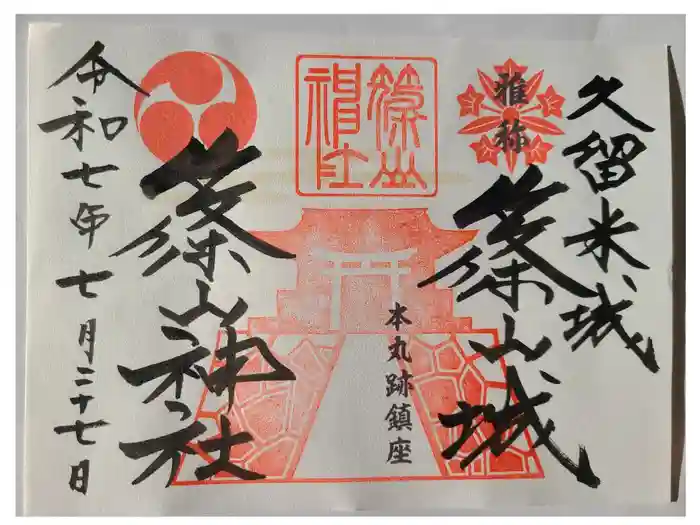 久留米城
雅称
篠山城
本丸跡鎮座
篠山神社
篠山神社
令和七年七月二十七日